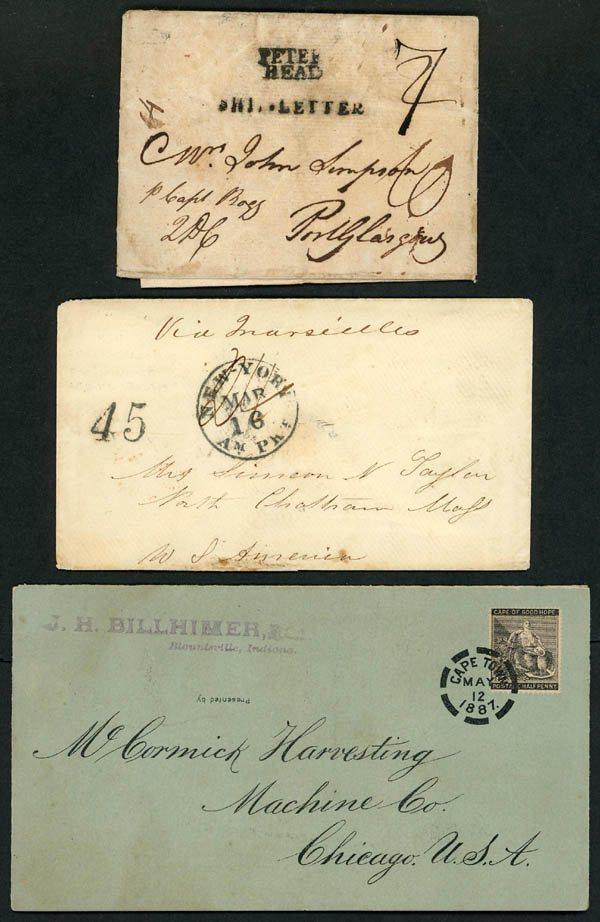 PETER
HEAD
SHIP-LETTER
7
Mr. John Simpson
p Capt Bogg
Port Glasgow
Via Marseilles
45
NEW-YORK
MAR
16
AM PKT
Mrs Simeon N Taylor
North Chatham Mass
U S America
J. H. BILLHIMER,
Blountsville, Indiana.
CAPE OF GOOD HOPE
POSTAGE HALF PENNY
CAPE TOWN
MAY
12
1887.
Presented by
McCormick Harvesting
Machine Co.
Chicago. U.S.A.